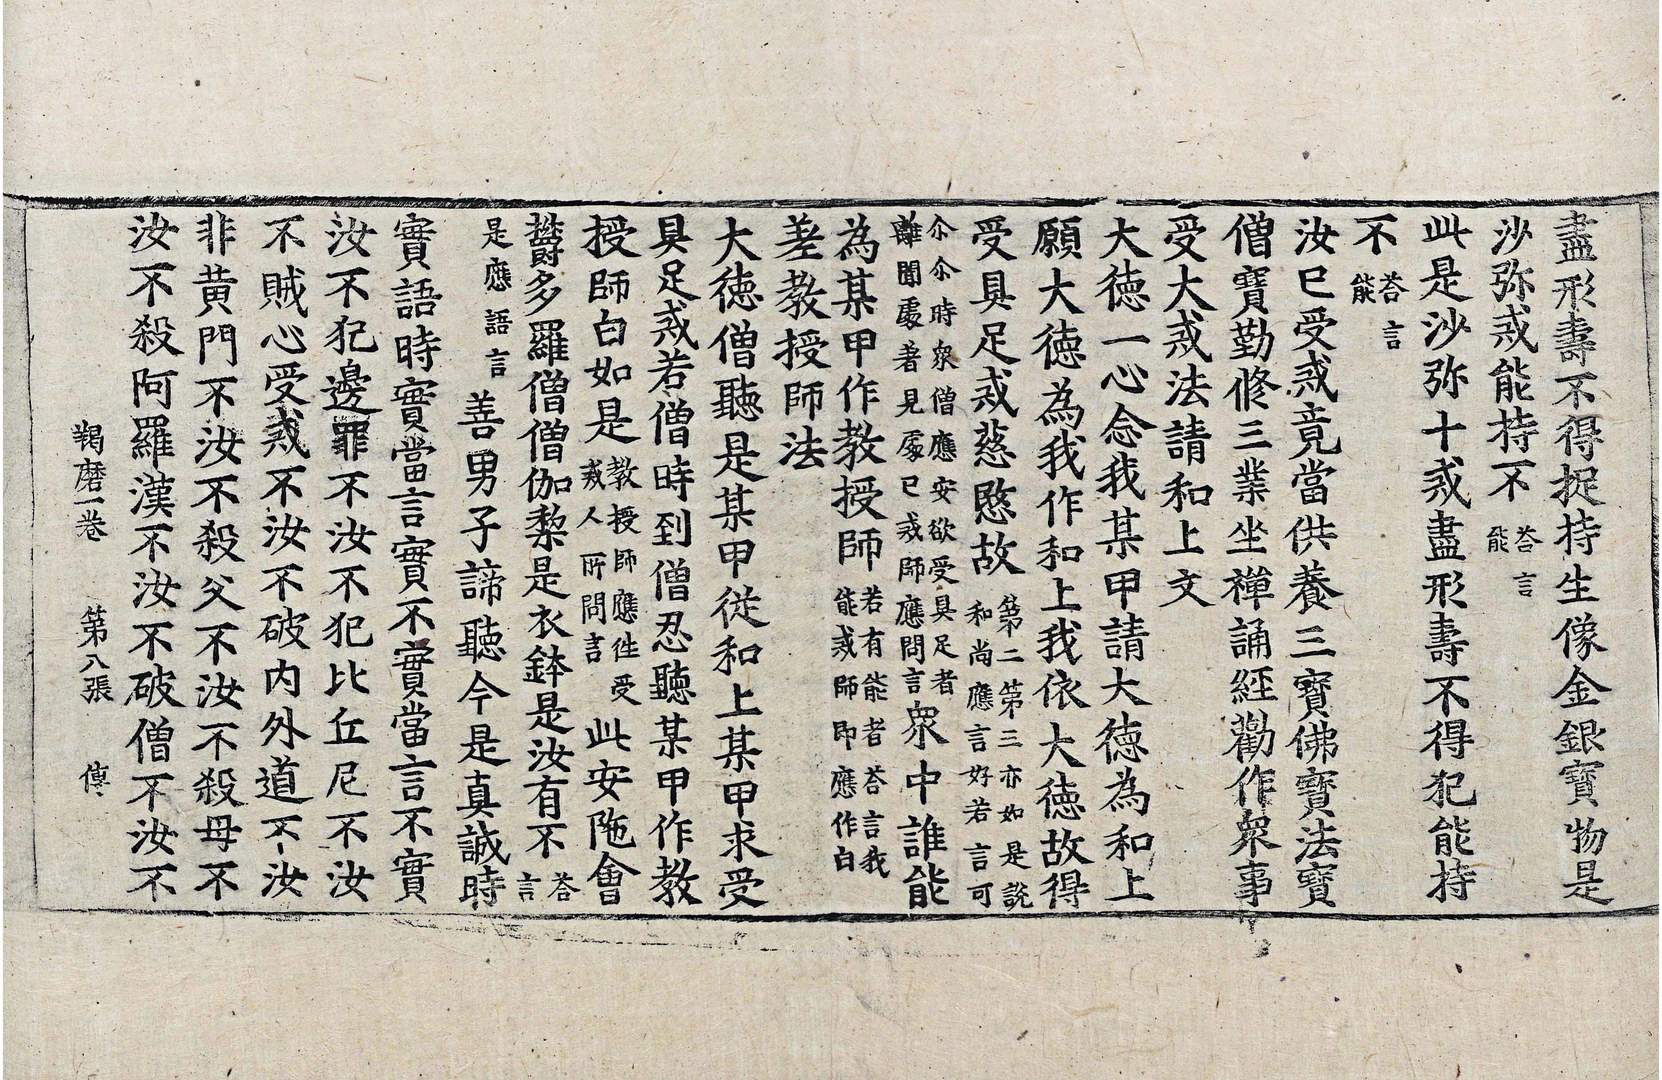 盡形壽不得捉持生像金銀寶物是
沙弥戒能持不荅言能
此是沙弥十戒盡形壽不得犯能持
不荅言能
汝已受戒竟當供養三寶佛寶法寶
僧寶勤修三業坐禪誦經勸作衆事
受大戒法請和上文
大徳一心念我某甲請大徳為和上
願大徳為我作和上我依大徳故得
受具足戒慈愍故第二第三亦如是說和尚應言好若言可
尒尒時衆僧應安欲受具足者離聞處著見處已戒師應問言衆中誰能
為某甲作教授師若有能者荅言我能戒師即應作白
差教授師法
大徳僧聽是某甲從和上某甲求受
具足戒若僧時到僧忍聽某甲作教
授師白如是教授師應徃受戒人所問言此安陁會
欝多羅僧僧伽梨是衣鉢是汝有不荅言
是應語言善男子諦聽今是真誠時
實語時實當言實不實當言不實
汝不犯邊罪不汝不犯比丘尼不汝
不賊心受戒不汝不破内外道不汝
非黄門不汝不殺父不汝不殺母不
汝不殺阿羅漢不汝不破僧不汝不
羯磨一卷 第八張 傅